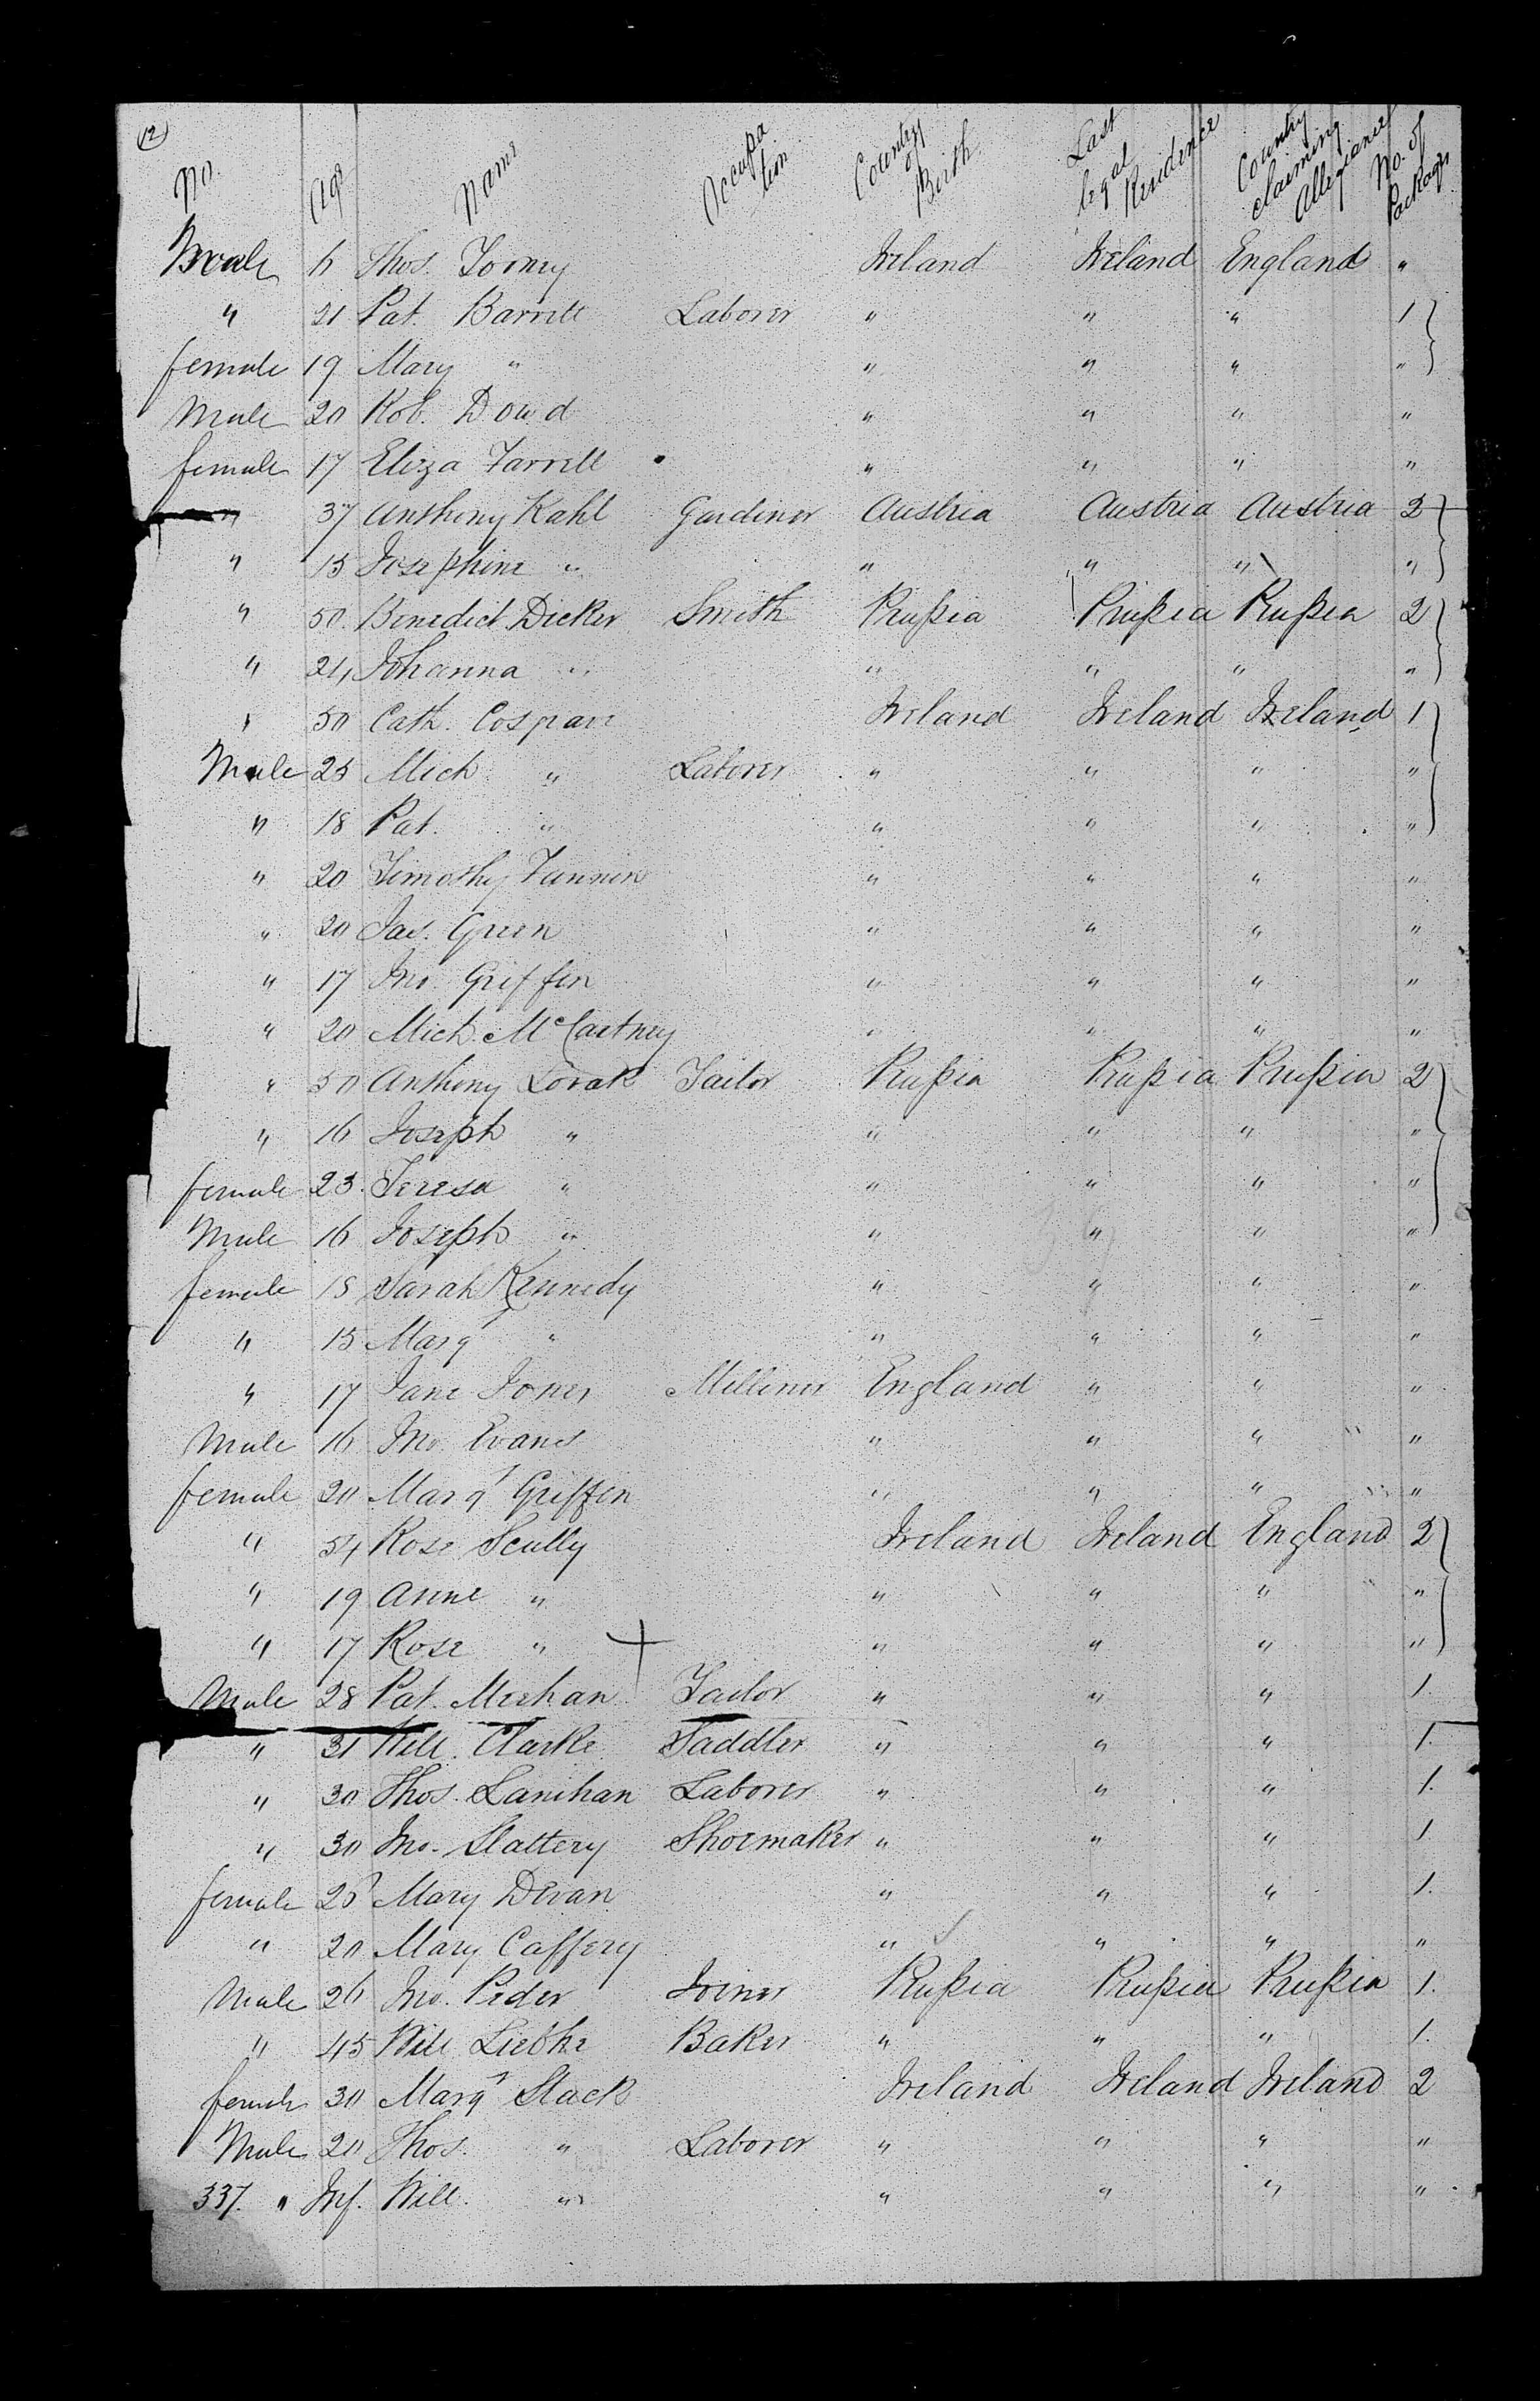 12
No. Age Name Occupation Country of Birth Last legal Residence Country claiming Allegiance No. of Packages
Male 6 Thos. Toomey Ireland Ireland England "
" 21 Pat. Barrett Laborer " " " 1
female 19 Mary " " " " "
Male 20 Rob. Dowd " " " "
female 17 Eliza Farrell " " " "
" 37 Anthony Kahl Gardiner Austria Austria Austria 2
" 15 Josephine " " " " "
" 50. Benedict Dicker Smith Prußia Prußia Prußia 2
" 24 Johanna " " " " "
" 50 Cath. Ireland Ireland Ireland 1
Male 25 Mich " Laborer " " " "
" 18 Pat. " " " " "
" 20 Timothy Fannin " " " "
" 20 Jas. Green " " " "
" 17 Jno. Griffin " " " "
" 20 Mich. McCartney " " " "
" 50 Anthony Lorak Tailor Prußia Prußia Prußia 2
" 16 Joseph " " " " "
female 23. Teresa " " " " "
Male 16 Joseph " " " " "
female 18 Sarah Kennedy " " " "
" 15 Marg " " " " "
" 17 Jane Jones Milliner England " " "
Male 16 Jno. Evans " " " "
female 20 Marg Griffin " " " "
" 54 Rose Scully Ireland Ireland England 2
" 19 Anne " " " " "
" 17 Rose " " " " "
Male 28 Pat. Meehan Tailor " " " 1.
" 31 Will. Clarke Saddler " " " 1.
" 30 Thos. Lanihan Laborer " " " 1.
" 30 Jno. Slattery Shoemaker " " " 1
female 28 Mary Devan " " " 1.
" 20 Mary Caffery " " " "
Male 26 Jno. Peder Joiner Prußia Prußia Prußia 1.
" 45 Will Liebke Baker " " " 1.
female 30 Marg Slack Ireland Ireland Ireland 2
Male 20 Thos. " Laborer " " " "
337. " Inf. Will. " " " " "